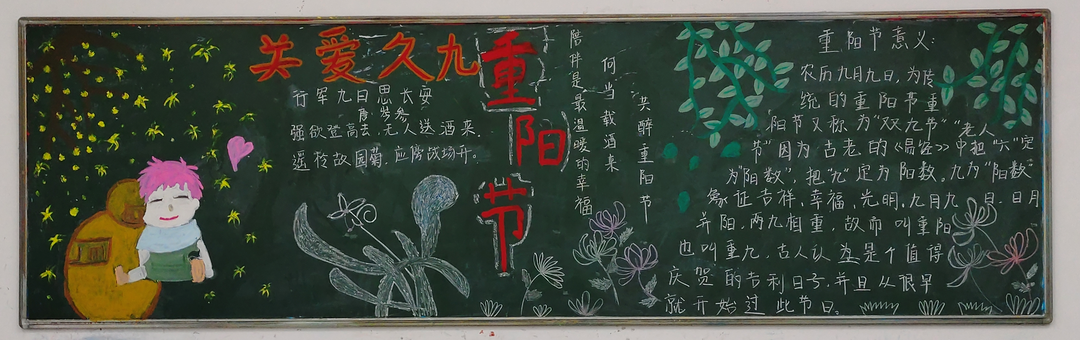 关爱久九
重阳节
行军九日思长安
岑参
强欲登高去,无人送酒来。
遥怜故园菊,应傍战场开。
陪伴是最温暖的幸福
何当载酒来
共醉重阳节
重阳节意义:
农历九月九日,为传
统的重阳节重
阳节又称为"双九节""老人
节"因为古老的《易经》中把"六"定
为阴数",把"九"定为阳数,九为"阳数"
象征吉祥,幸福,光明,九月九日,日月
并阳,两九相重,故而叫重阳
也叫重九,古人认为是个值得
庆贺的吉利日子,并且从很早
就开始过此节日。